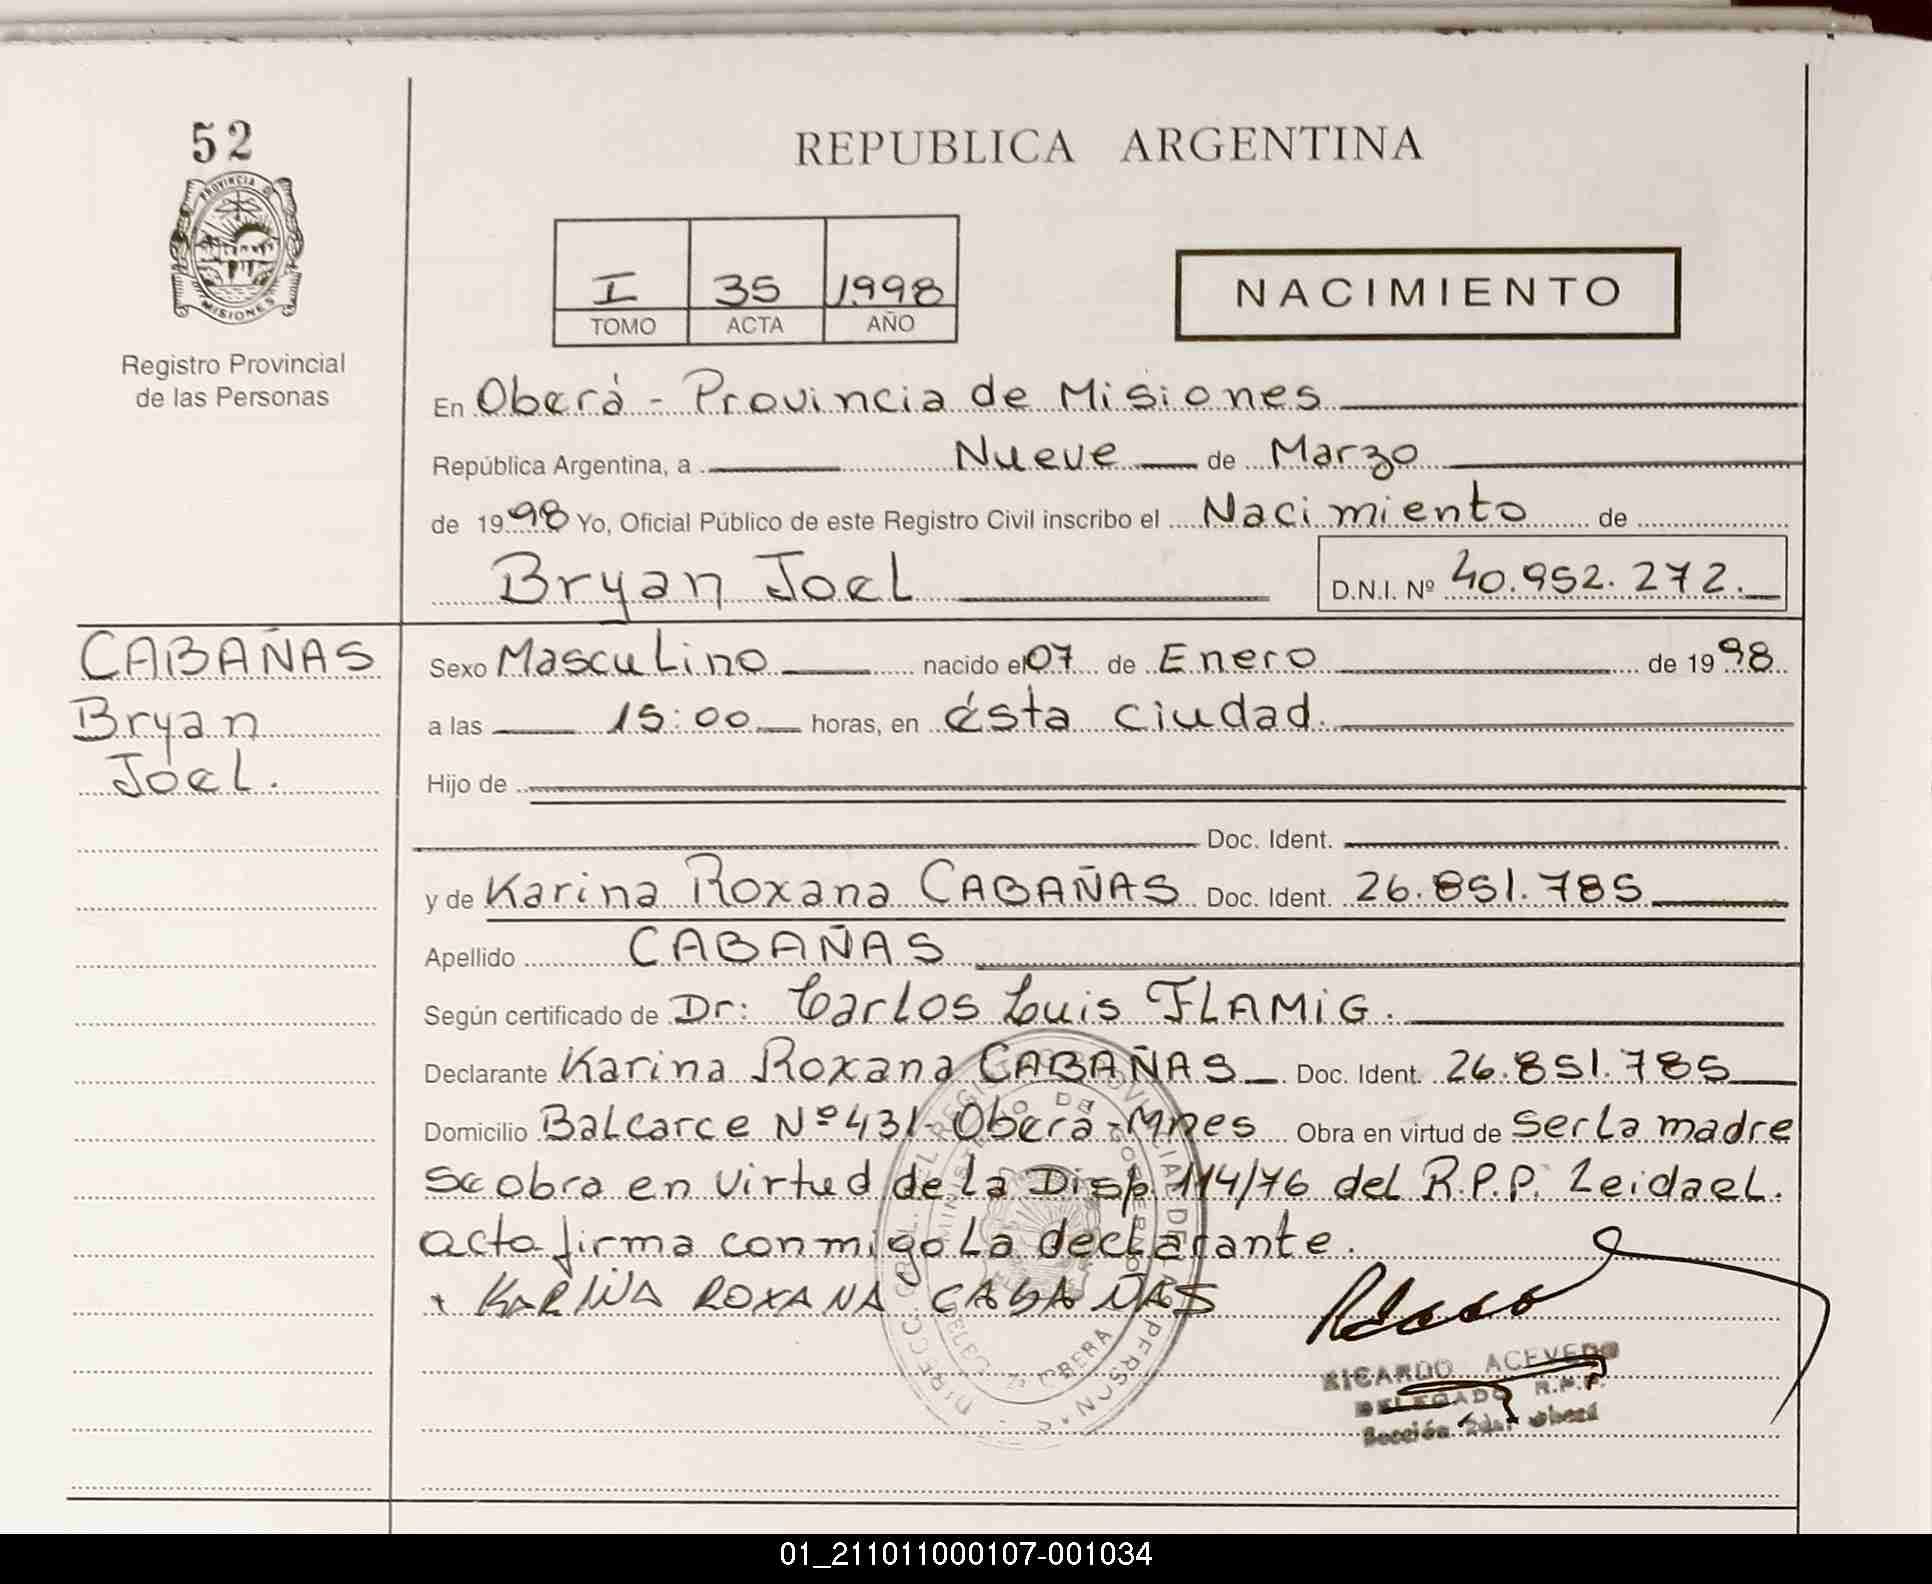 52
PROVINCIA DE
MISIONES
Registro Provincial
de las Personas
REPUBLICA ARGENTINA
I 35 1998
TOMO ACTA AÑO
NACIMIENTO
En Oberá - Provincia de Misiones
República Argentina, a Nueve de Marzo
de 1998 Yo, Oficial Público de este Registro Civil inscribo el Nacimiento de
Bryan Joel D.N.I. Nº 40.952.272.
CABAÑAS
Bryan
Joel.
Sexo Masculino nacido el 07 de Enero de 1998
a las 15:00 horas, en ésta ciudad.
Hijo de
Doc. Ident.
y de Karina Roxana CABAÑAS Doc. Ident. 26.851.785
Apellido CABAÑAS
Según certificado de Dr: Carlos Luis FLAMIG.
Declarante Karina Roxana CABAÑAS Doc. Ident. 26.851.785
Domicilio Balcarce Nº 431- Oberá - Mnes Obra en virtud de ser la madre
se obra en virtud de la Disp. 114/76 del R.P.P. Leida el
acta firma conmigo la declarante.
KARINA ROXANA CABAÑAS
RICARDO ACEVEDO
DELEGADO R.P.P.
Sección 2da. Oberá
01_211011000107-001034